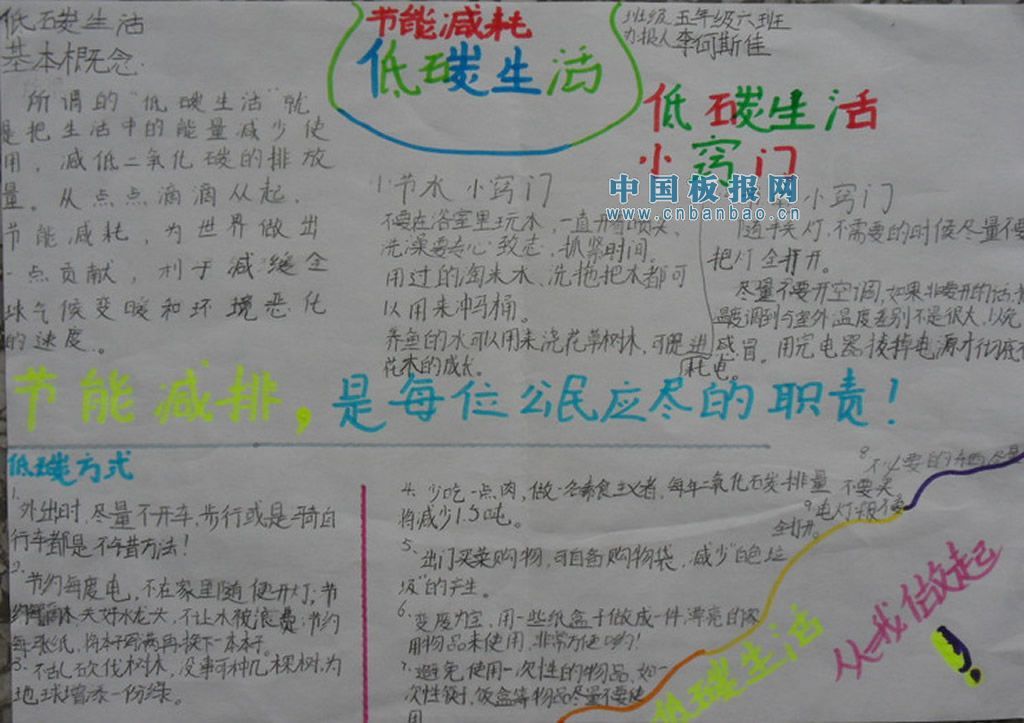 低碳生活
基本概念.
所谓的“低碳生活”就
是把生活中的能量减少使
用，减低二氧化碳的排放
量。从点点滴滴从起，
节能减耗，为世界做出
一点贡献，利于减缓全
球气候变暖和环境恶化
的速度。
节能减耗
低碳生活
班级 五年级六班
办报人 李何斯佳
低碳生活
小窍门
中国板报网
www.cnbanbao.cn
小节水小窍门
不要在浴室里玩水，一直开着喷头、
洗澡要专心致志，抓紧时间。
用过的淘米水、洗拖把水都可
以用来冲马桶。
养鱼的水可以用来浇花草树木，可促进
花木的成长。
小窍门
随手关灯，不需要的时候尽量不要
把灯全打开。
尽量不要开空调，如果非要开的话，
温度调到与室外温度差别不是很大，以免
感冒。用完电器拔掉电源才彻底不
耗电。
节能减排，是每位公民应尽的职责！
低碳方式
1.外出时，尽量不开车，步行或是骑自
行车都是不错方法！
2.节约每度电，不在家里随便开灯；节
约 关好水龙头，不让水被浪费；节约
每张纸，将本子写满再换下一本本子。
3.不乱砍伐树木，没事可种几棵树，为
地球增添一份绿。
4.少吃一点肉，做一名素食主义者，每年二氧化碳排量
将减少1.5吨。
5.出门买菜购物，可自备购物袋，减少“白色垃
圾”的产生。
6.变废为宝，用一些纸盒子做成一件漂亮的家
用物品来使用，非常方便哟！
7.避免使用一次性的物品，如一
次性筷，饭盒等物品尽量不要使
用
8.不必要的东西尽量
不要买
9.电灯 不要
全打开。
低碳生活
从我做起
！